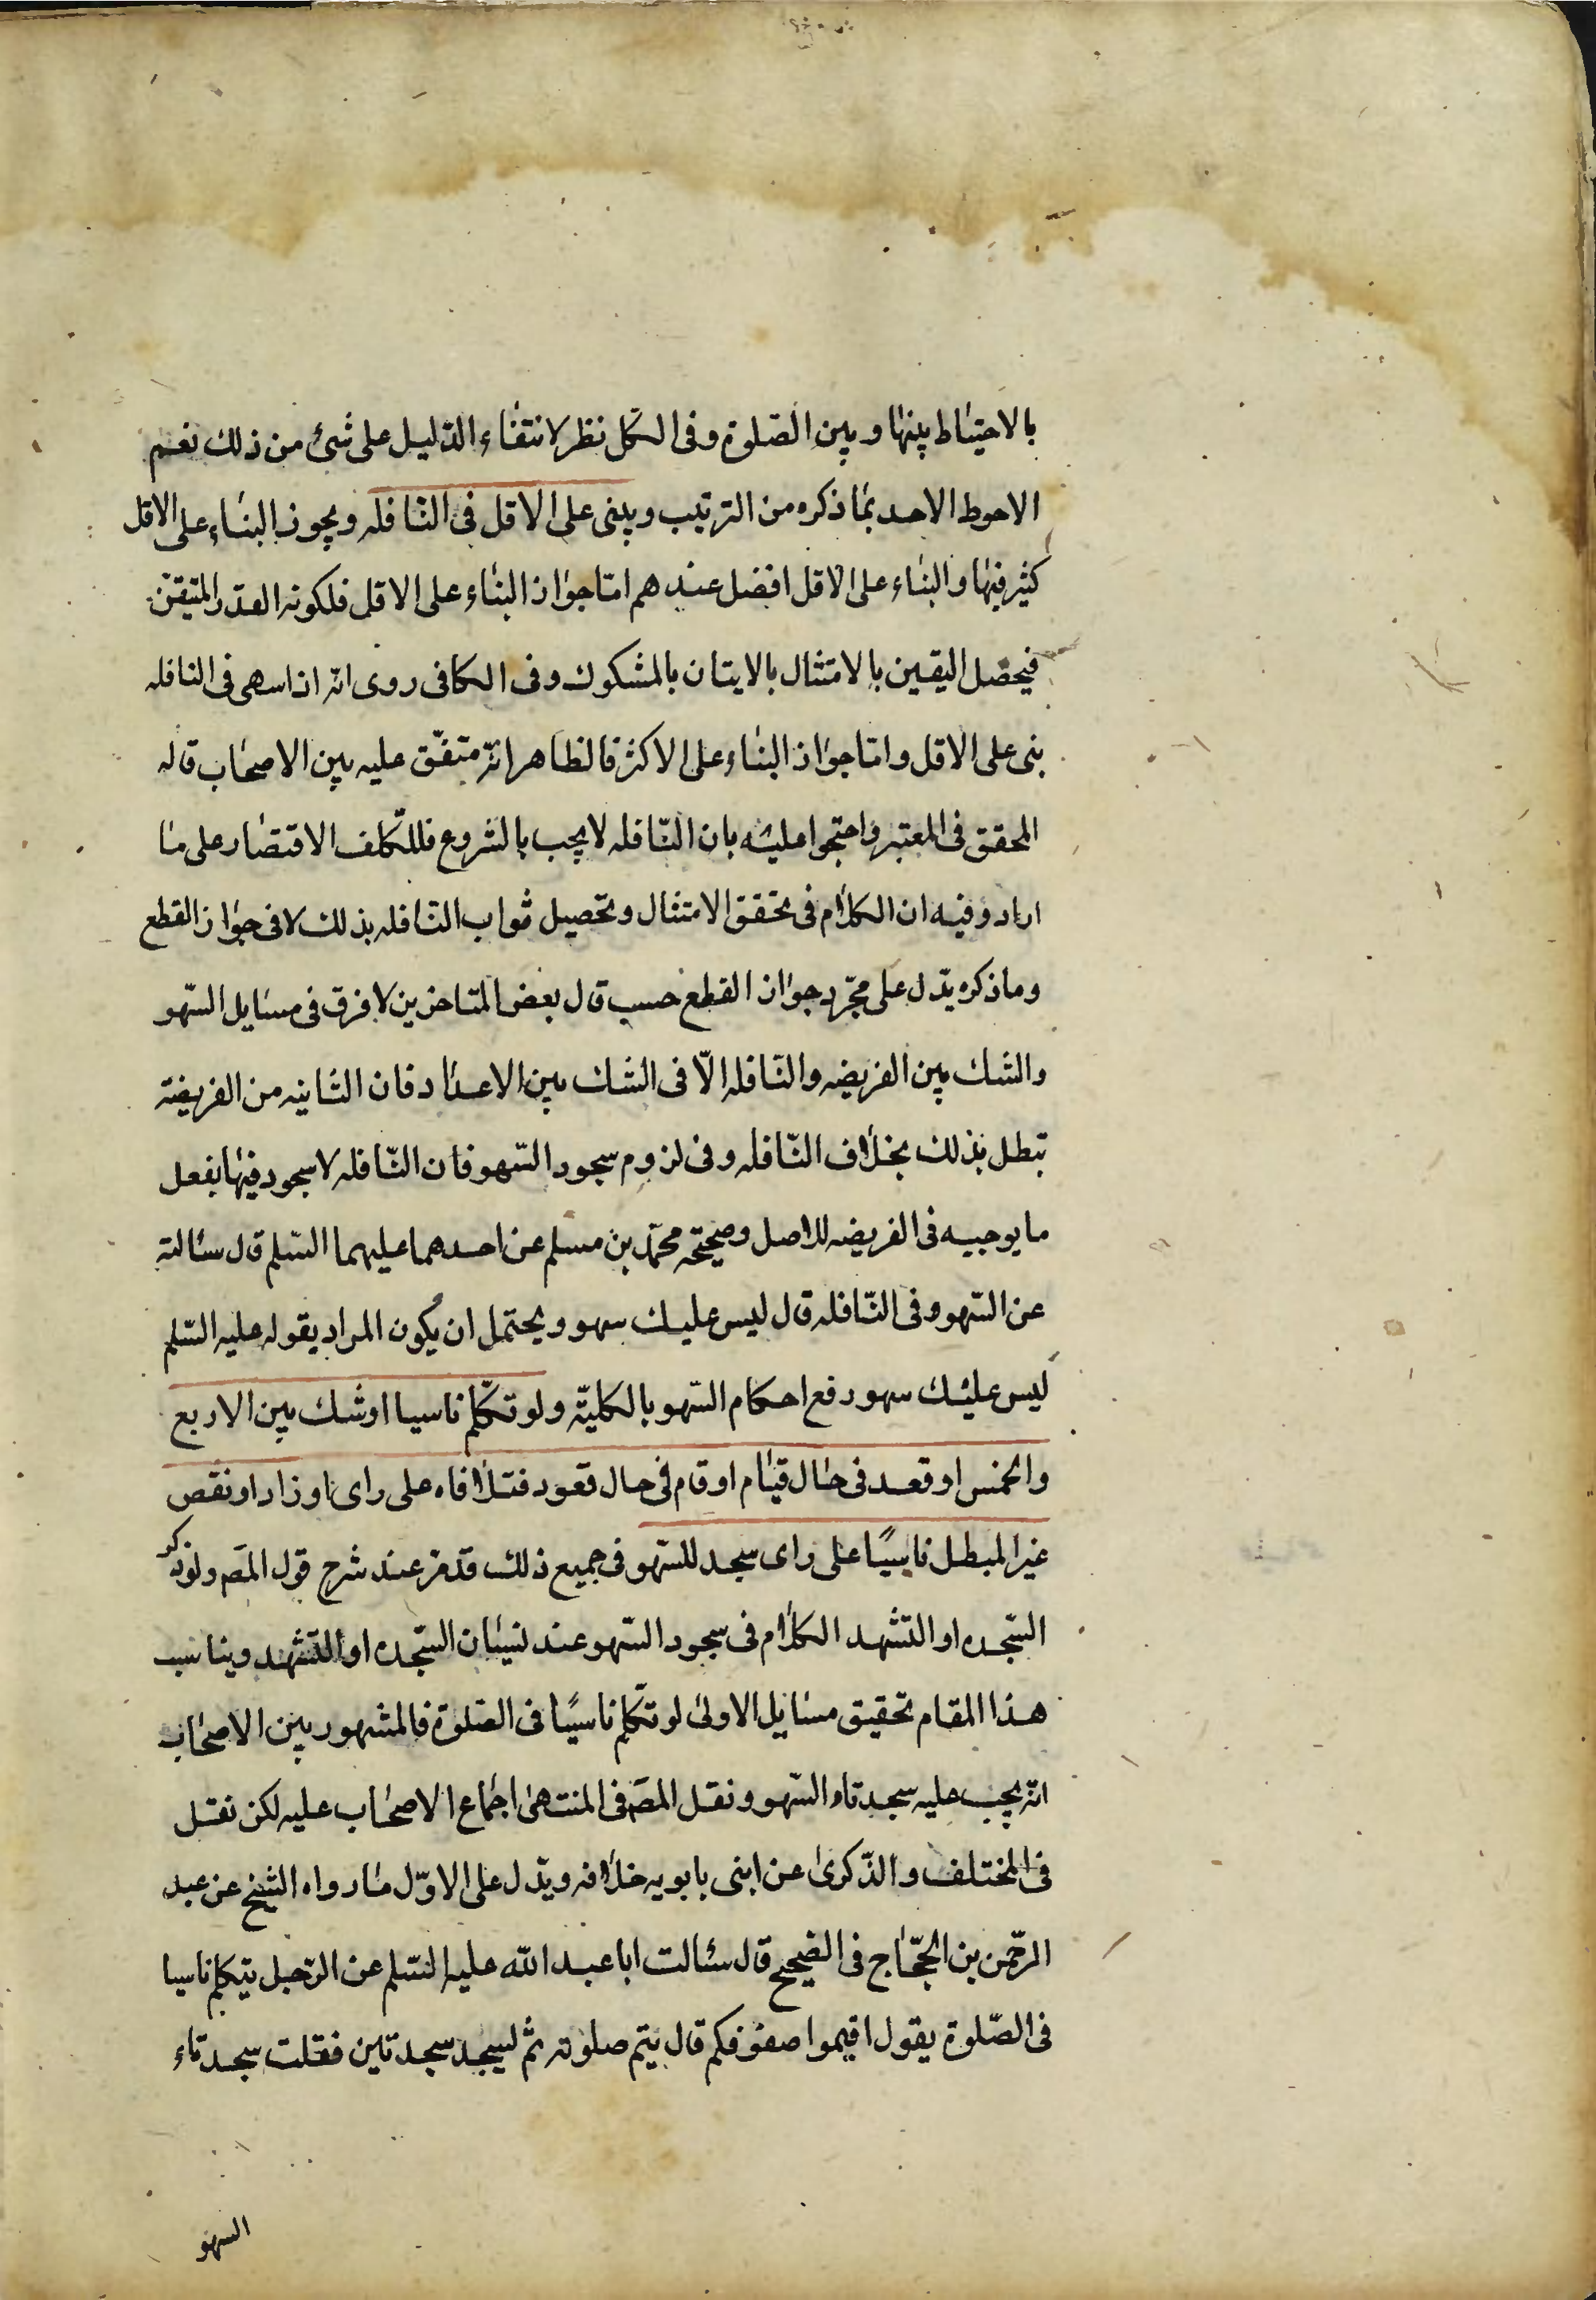 بالاحتياط بينها وبين الصّلوة وفى الكل نظر لانتفاء الدّليل على شئ من ذلك نعم
الاحوط الاحد بما ذكره من الترتيب ويبنى على الاقل فى النّافله ويجوز البناء على الاقل
كثير فيها والبناء على الاقل افضل عندهم امّا جواز البناء على الاقل فلكونه القدر المتيقن
فيحصل اليقين بالامتثال بالايتان بالمشكوك وفى الكافى روى انّه اذا سهى فى النافله
بنى على الاقل وامّا جواز البناء على الاكثر فالظاهر انّه متفّق عليه بين الاصحاب قاله
المحقق فى المعتبر واحتجوا عليه بان النّافله لا يجب بالشروع فللمكلف الاقتصار على ما
اراد وفيه ان الكلام فى تحقق الامتثال وتحصيل ثواب النّافله بذلك لا فى جواز القطع
وما ذكره يدّل على مجّرد جواز القطع حسب قال بعض المتاخرين لا فرق فى مسايل السّهو
والشك بين الفريضه والنّافله الّا فى الشك بين الاعداد فان الثانيه من الفريضة
تبطل بذلك بخلاف النّافله وفى لزوم سجود السّهو فان النّافله لا سجود فيها بفعل
ما يوجبه فى الفريضه للاصل وصحيحه محمّد بن مسلم عن احدهما عليهما السّلم قال سئالته
عن السّهو وفى النّافله قال ليس عليك سهو ويحتمل ان يكون المراد بقوله عليه السّلم
ليس عليك سهو رفع احكام السّهو بالكليّه ولو تكلّم ناسيا او شك بين الاربع
والخمس او قعد فى حال قيام او قام فى حال قعود فتلافاه على راى او زاد او نقص
غير المبطل ناسيًا على راى سجد للسّهو فى جميع ذلك قد مرّ عند شرح قول المصَ ولو ذكر
السّجده او التّشهد الكلام فى سجود السّهو عند نسيان السّجده او التشهد ويناسب
هذا المقام تحقيق مسايل الاولى لو تكلّم ناسيًا فى الصّلوة فالمشهور بين الاصحاب
انّه يجب عليه سجدتاء السّهو ونقل المصَ فى المنتهى اجماع الاصحاب عليه لكن نقل
فى المختلف والذّكرى عن ابنى بابويه خلافه ويدّل على الاوّل ما رواه الشيخ عن عبد
الرّحمن بن الحجّاج فى الصّحيح قال سئالت ابا عبد الله عليه السّلم عن الرّجل يتكلم ناسيا
فى الصّلوة يقول اقيموا صفوفكم قال يتم صلوته ثم ليسجد سجدتين فقلت سجدتاء
السهو